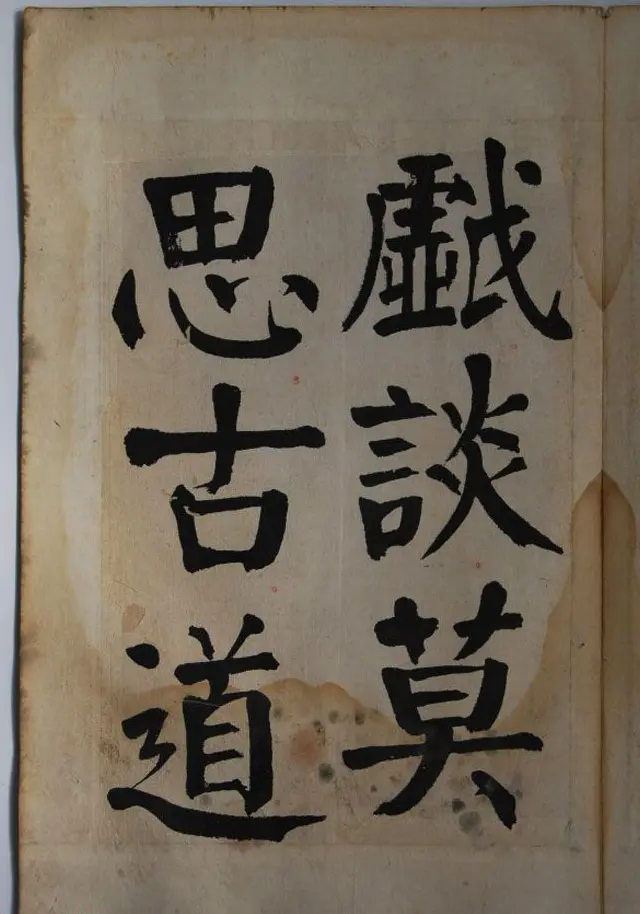 戱談莫
思古道